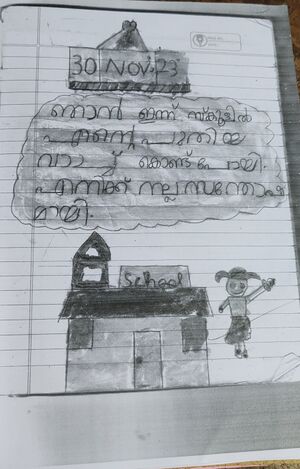 30 NOV 23
ഞാൻ ഇന്ന് സ്കൂളിൽ
എന്റെ പുതിയ
വാച്ച് കൊണ്ട് പോയി.
എനിക്ക് നല്ല സന്തോഷ
മായി.
School